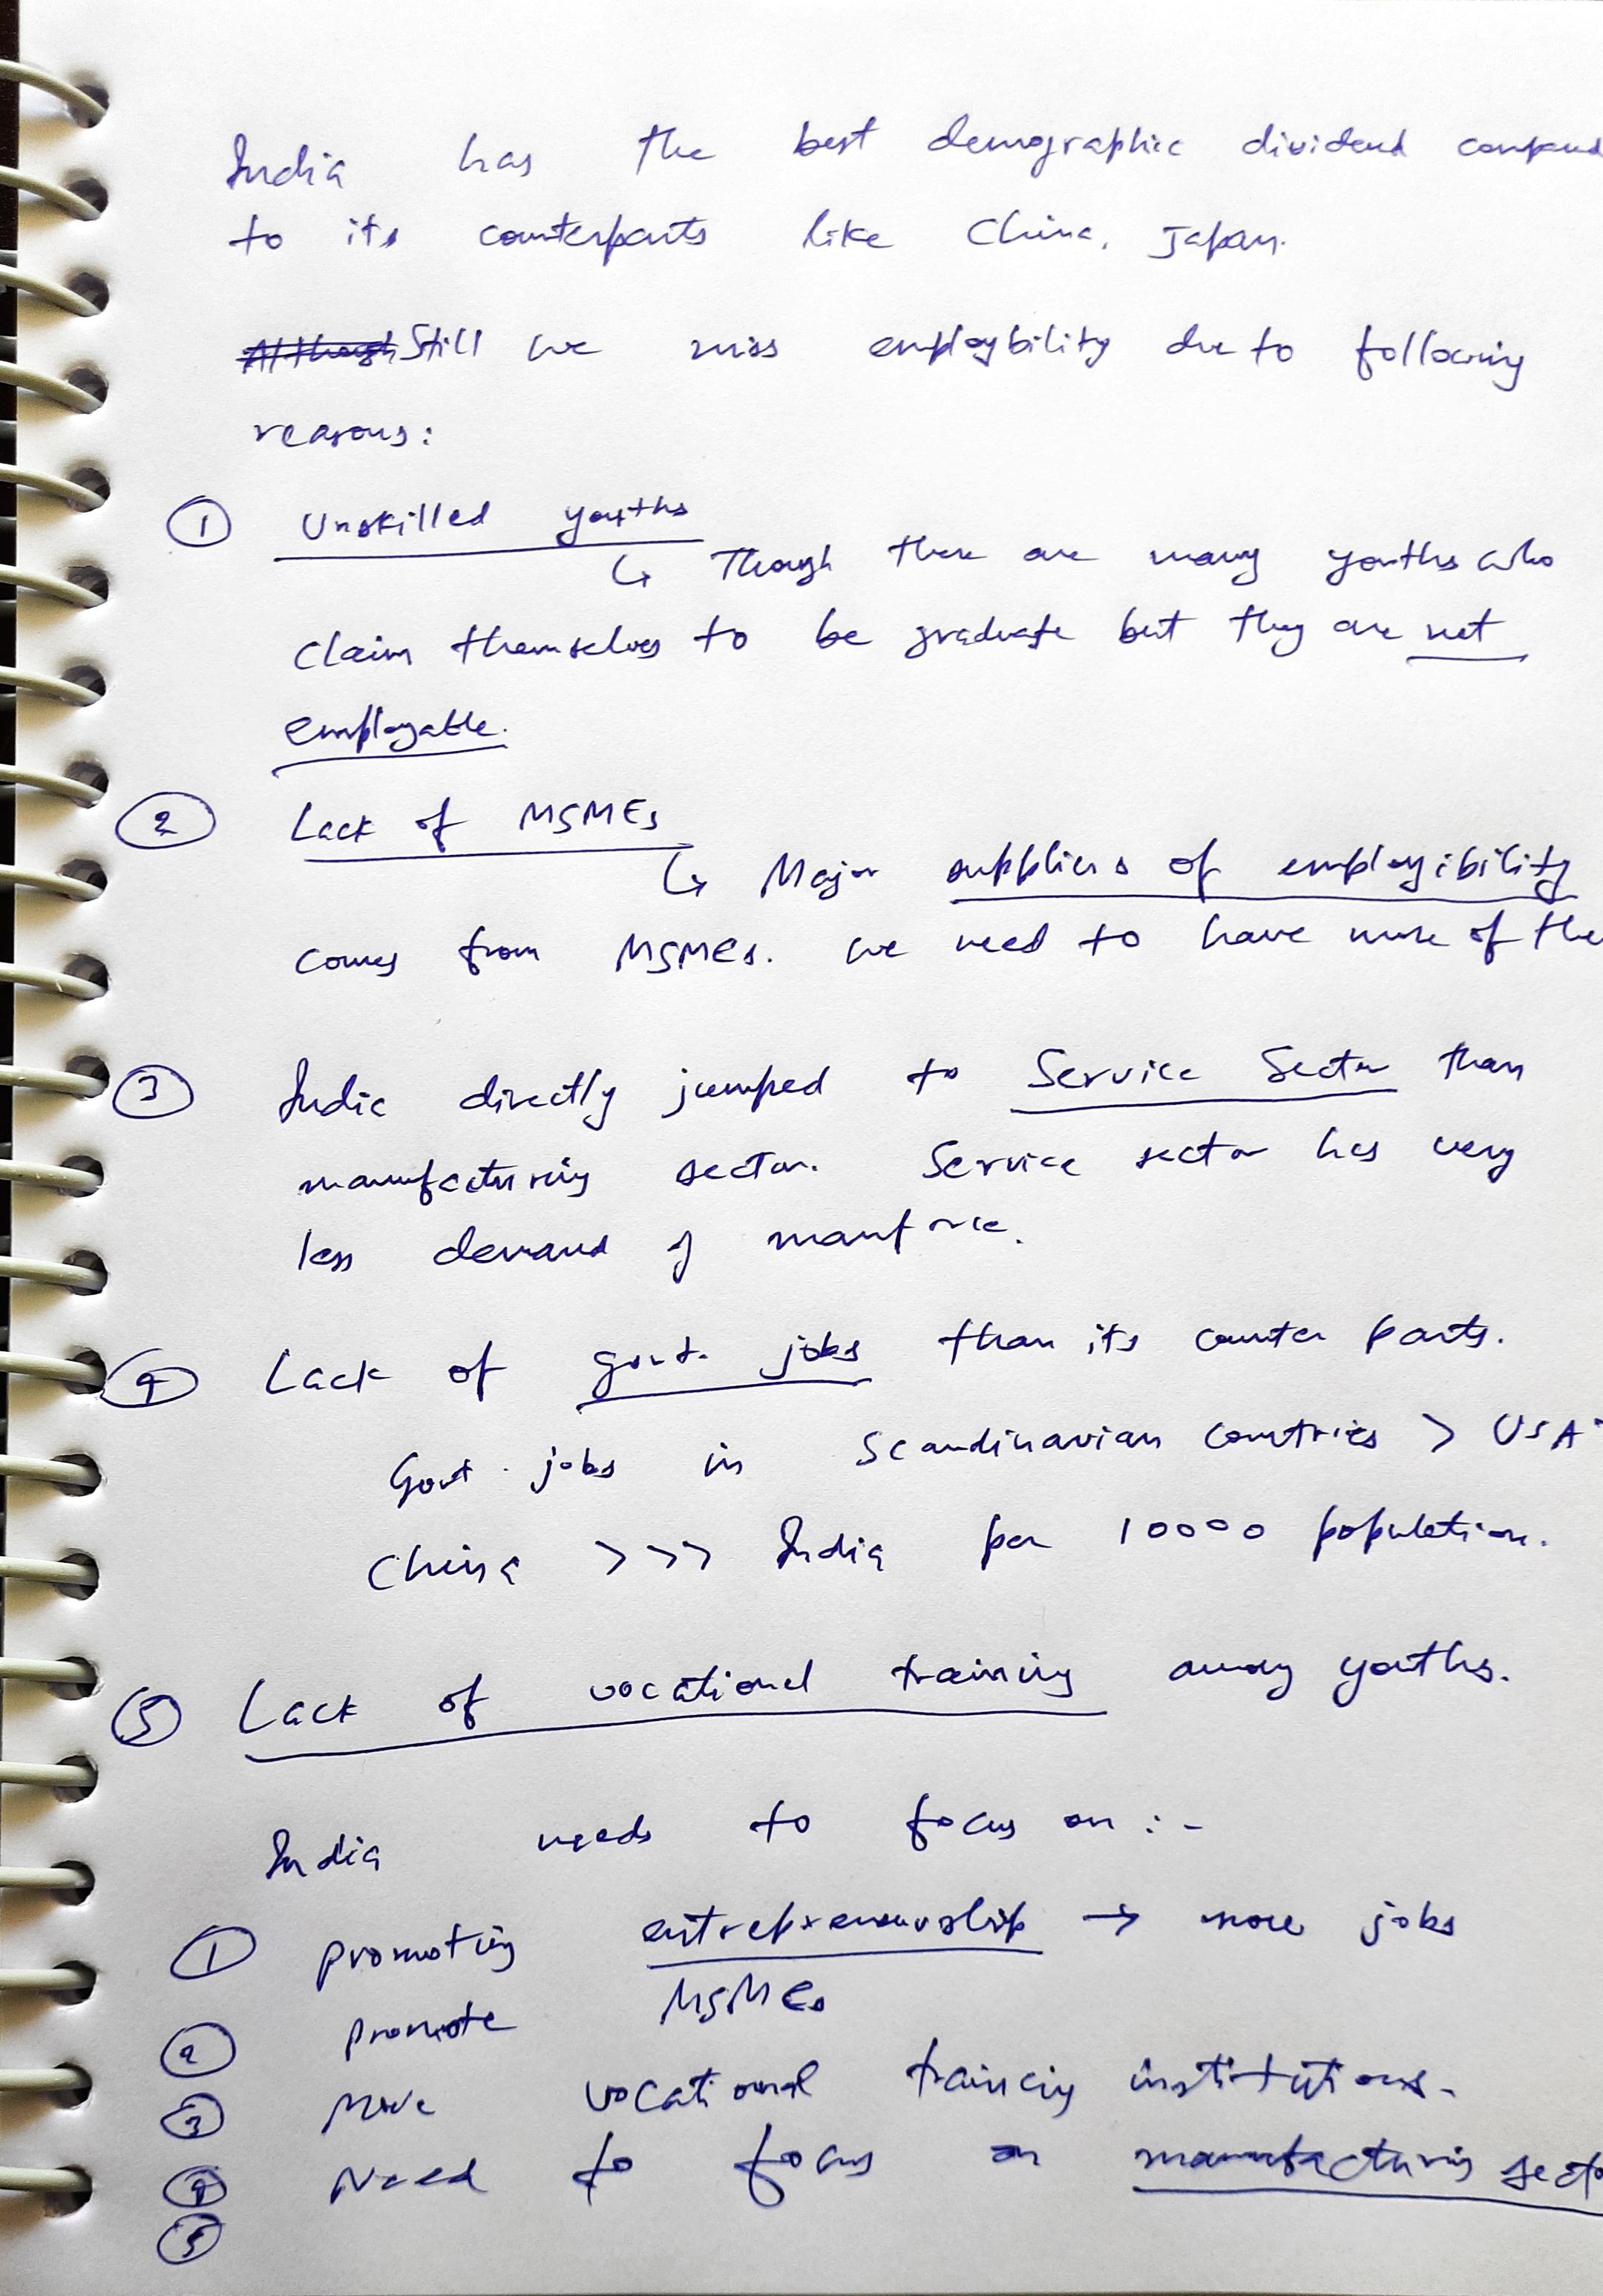 India has the best demographic dividend
to its counterparts like China, Japan.
Still we miss employbility due to following
reasons:
① Unskilled youths
↳ Though there are many youths who
claim themselves to be graduate but they are not
employable.
② Lack of MSMEs
↳ Major suppliers of employibility
comes from MSMEs. We need to have more of
③ India directly jumped to Service Sector than
manufacturing sector. Service sector has very
less demand of manforce.
④ Lack of govt. jobs than its counter parts.
Govt. jobs in Scandinavian Countries > USA
China >>> India per 10000 population.
⑤ Lack of vocational training among youths.
India needs to focus on :-
① promoting entreprenourship → more jobs
② promote MSMEs
③ More vocational training institutions.
④ Need to focus on manufacturing
⑤